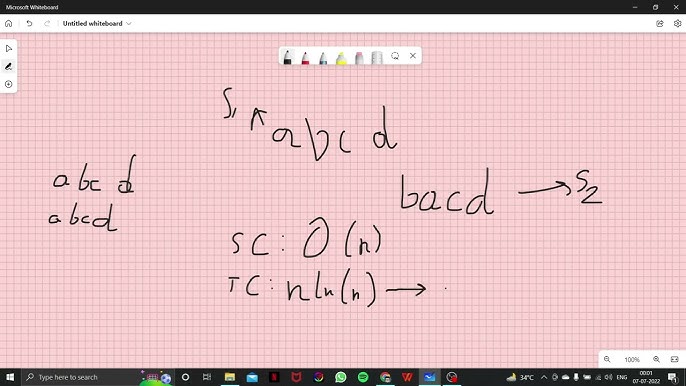 Microsoft Whiteboard
Untitled whiteboard
S1
abcd
abcd
abcd
bacd → S2
SC: O(n)
TC: nln(n) →
100%
Type here to search
34°C
ENG
00:01
07-07-2022